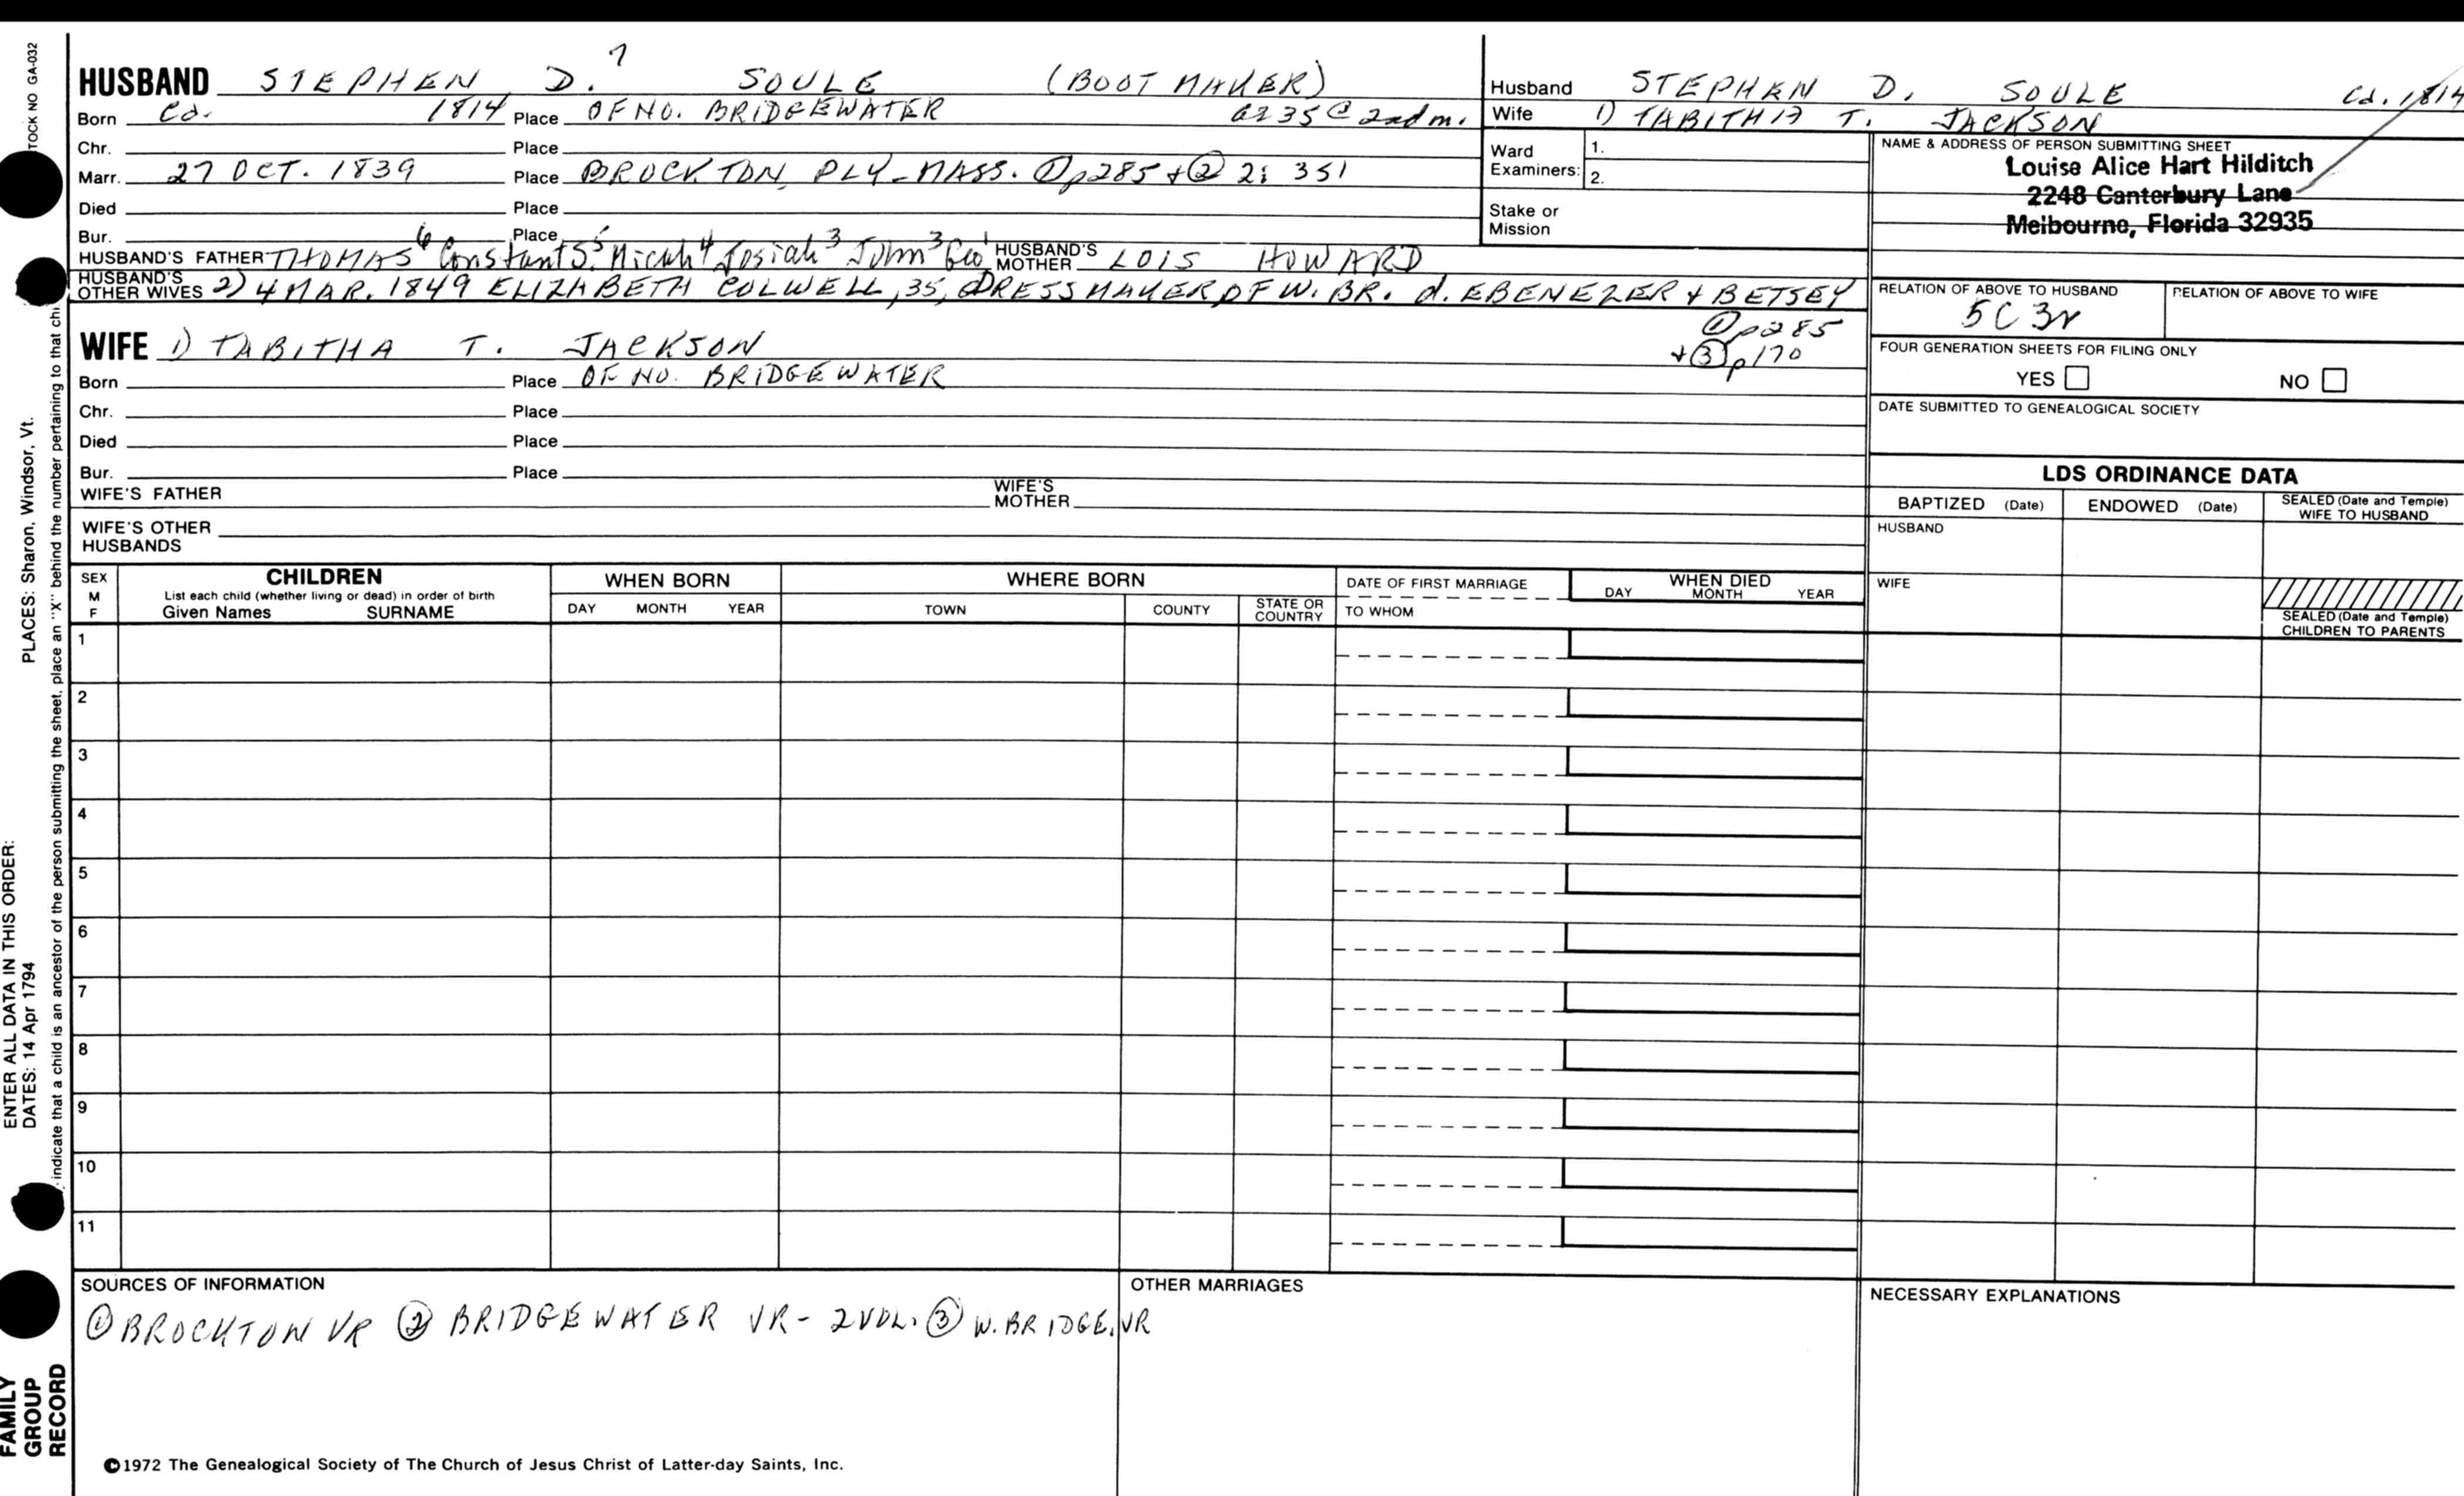 HUSBAND STEPHEN D.7 SOULE (BOOT MAKER)
Born Ca. 1814 Place OF NO. BRIDGEWATER ae 35 @ 2nd m.
Chr. Place
Marr. 27 OCT. 1839 Place BROCKTON, PLY-MASS. ① p285 + ② 2: 351
Died Place
Bur. Place
HUSBAND'S FATHER THOMAS6 Constant S.5 Micah4 Josiah3 John3 Geo1 HUSBAND'S MOTHER LOIS HOWARD
HUSBAND'S OTHER WIVES 2) 4 MAR. 1849 ELIZABETH COLWELL, 35, DRESSMAKER, OF W. BR. d. EBENEZER + BETSEY
① p285
+ ③ p170
WIFE 1) TABITHA T. JACKSON
Born Place OF NO. BRIDGEWATER
Chr. Place
Died Place
Bur. Place
WIFE'S FATHER WIFE'S MOTHER
WIFE'S OTHER HUSBANDS
Husband STEPHEN D. SOULE Ca. 1814
Wife 1) TABITHA T. JACKSON
Ward Examiners: 1.
2.
Stake or Mission
NAME & ADDRESS OF PERSON SUBMITTING SHEET
Louise Alice Hart Hilditch
2248 Canterbury Lane
Melbourne, Florida 32935
RELATION OF ABOVE TO HUSBAND RELATION OF ABOVE TO WIFE
5C 3r
FOUR GENERATION SHEETS FOR FILING ONLY
YES NO
DATE SUBMITTED TO GENEALOGICAL SOCIETY
LDS ORDINANCE DATA
BAPTIZED (Date) ENDOWED (Date) SEALED (Date and Temple) WIFE TO HUSBAND
HUSBAND
WIFE
SEALED (Date and Temple) CHILDREN TO PARENTS
SEX M F CHILDREN WHEN BORN WHERE BORN DATE OF FIRST MARRIAGE WHEN DIED
List each child (whether living or dead) in order of birth
Given Names SURNAME DAY MONTH YEAR TOWN COUNTY STATE OR COUNTRY TO WHOM DAY MONTH YEAR
1
2
3
4
5
6
7
8
9
10
11
SOURCES OF INFORMATION OTHER MARRIAGES NECESSARY EXPLANATIONS
① BROCKTON VR ② BRIDGEWATER VR - 2 VOL. ③ W. BRIDGE. VR
©1972 The Genealogical Society of The Church of Jesus Christ of Latter-day Saints, Inc.
TOCK NO GA-032
PLACES: Sharon, Windsor, Vt.
ENTER ALL DATA IN THIS ORDER:
DATES: 14 Apr 1794
indicate that a child is an ancestor of the person submitting the sheet, place an "X" behind the number pertaining to that chi
FAMILY
GROUP
RECORD